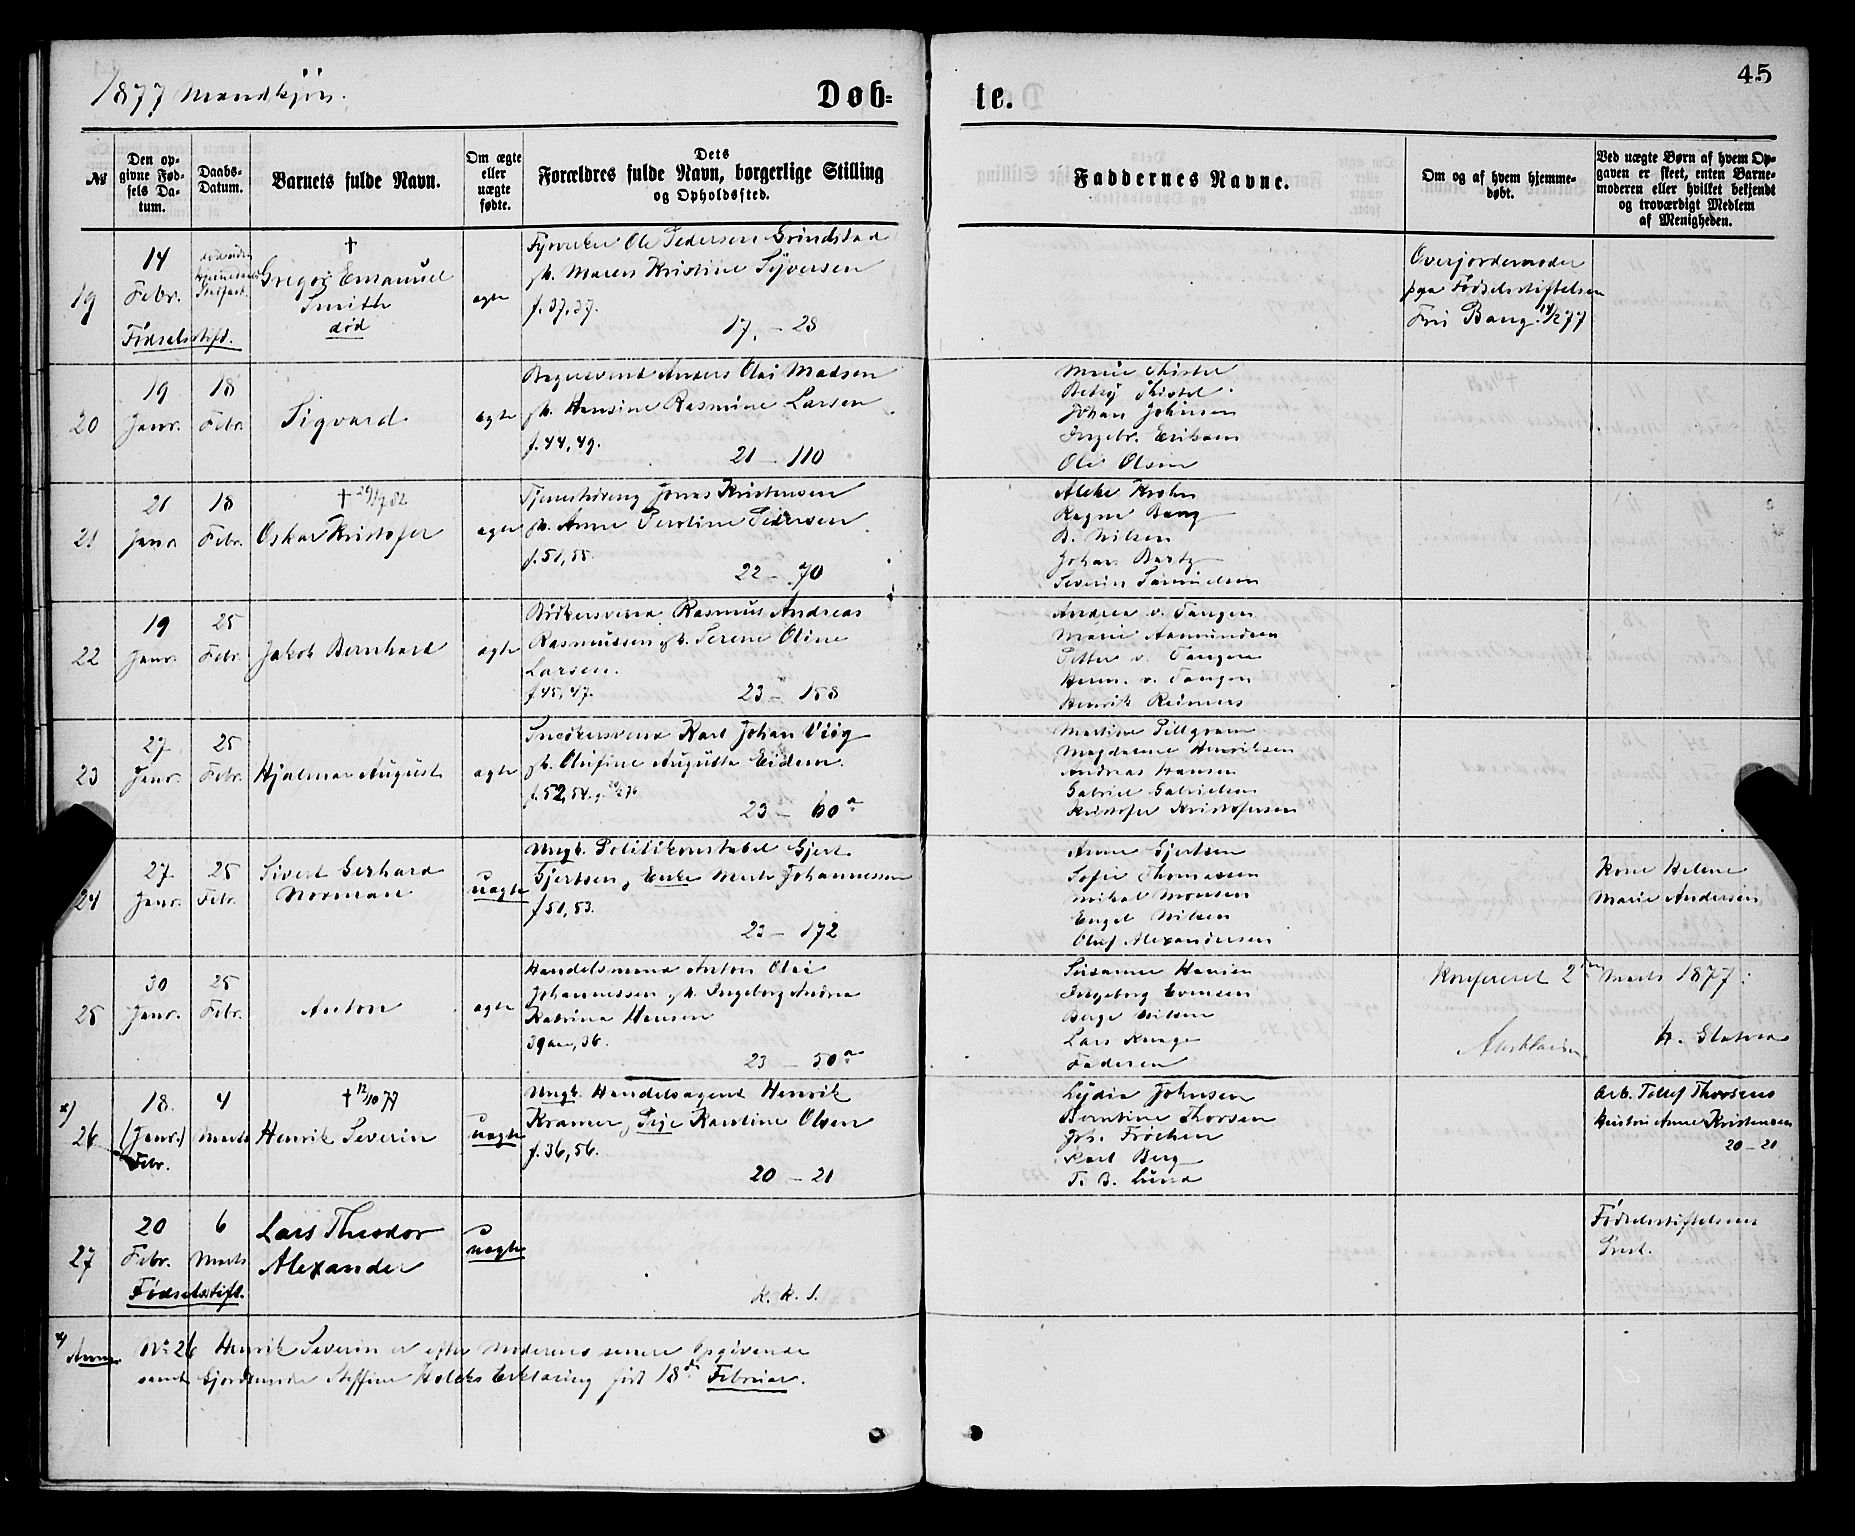 45
1877 Mandkjøn.
Døb-
te.
№
Den op-
givne Fød-
sels Da-
tum.
Daabs-
Datum.
Barnets fulde Navn.
Om ægte
eller
uægte
fødte.
Dets
Forældres fulde Navn, borgerlige Stilling
og Opholdssted.
Faddernes Navne.
Om og af hvem hjemme-
døbt.
Ved uægte Børn af hvem Op-
gaven er skeet, enten Barne-
moderen eller hvilket bekjendt
og troværdigt Medlem
af Menigheden.
19
14
Febr.
Fødselsstift.
†
Gregor Emanuel
Smith
død
ægte
Fyrvrker Ole Pedersen Grindstad
Maren Kristine Syversen
f. 37, 37.
17. – 28
Overjordemoder
paa Fødselsstiftelsen
Fru Bang 14/2 77
20
19
Janr.
18
Febr.
Sigvard
ægte
Bagersvend Anders Olai Madsen
Hansine Rasmine Larsen
f. 44, 49.
21 – 110
Marie Thistel
Betsy Thistel
Johan Johnsen
Ingebr. Eriksen
Ole Olsen
21
21
Janr
18
Febr.
† 29/7 82
Oskar Kristofer
ægte
Tjenestdreng Jonas Kristensen
Anne Serotine Pedersen
f. 51, 55.
22 – 70
Aleke Krohn
Ragna Bang
B. Nilsen
Johan Bartz
Severin Samuelsen
22
19
Janr.
25
Febr.
Jakob Bernhard
ægte
Bødkersvend Rasmus Andreas
Rasmussen, Serene Oline
Larsen.
f. 45, 47.
23 – 158
Andrea v. Tangen
Marie Aamundsen
Petter v. Tangen
Herm. v. Tangen
Henrik Reimers
23
27
Janr.
25
Febr.
Hjalmar August
ægte
Snedkersvend Karl Johan Viig
Olufine Augusta Eidem.
f. 52, 54.
23 – 60 a
Martine Pillgram
Magdalene Henriksen
Andreas Hansen
Gabriel Gabrielsen
Kristofer Kristofersen
24
27
Janr.
25
Febr.
Sivert Gerhard
Norman
uægte
Ungk. Politikonstabel Gjert
Gjertsen, Enke Marte Johannessen
f. 51, 53.
23 – 172
Anne Gjertsen
Sofie Thomassen
Mikal Monsen
Engel Nilsen
Oluf Alexandersen
Kone Helene
Marie Andersen
25
30
Janr.
25
Febr.
Anton
ægte
Handelsmand Anton Olai
Johannessen, Ingeborg Andrea
Katrina Hansen
39, 36.
23 – 50 a
Susanne Hansen
Ingeborg Evensen
Berge Nilsen
Lars Knage
Faderen
Konfereret 2 Marts 1877:
26
18.
(Janr.)
Febr.
4
Marts
† 12/10 77
Henrik Severin
uægte
Ungk. Handelsagent Henrik
Kramer, Pige Karoline Olsen
f. 36, 56.
20 – 21
Lydia Johnsen
Berntine Thorsen
Joh. Frøchen
Karl Berg
T. B. Lund
Arb. Tollef Thorsens
Hustru Anne Kristensen
20 – 21
27
20
Febr.
Fødselsstift.
6
Marts
Lars Theodor
Alexander
uægte
K. K. 1.
Fødselsstiftelsens
Prest.
x) Anm. No 26 Henrik Severin er efter Moderens senere Opgivende
samt Gjordemoder Steffine Holcks Erklæring født 18de Februar.